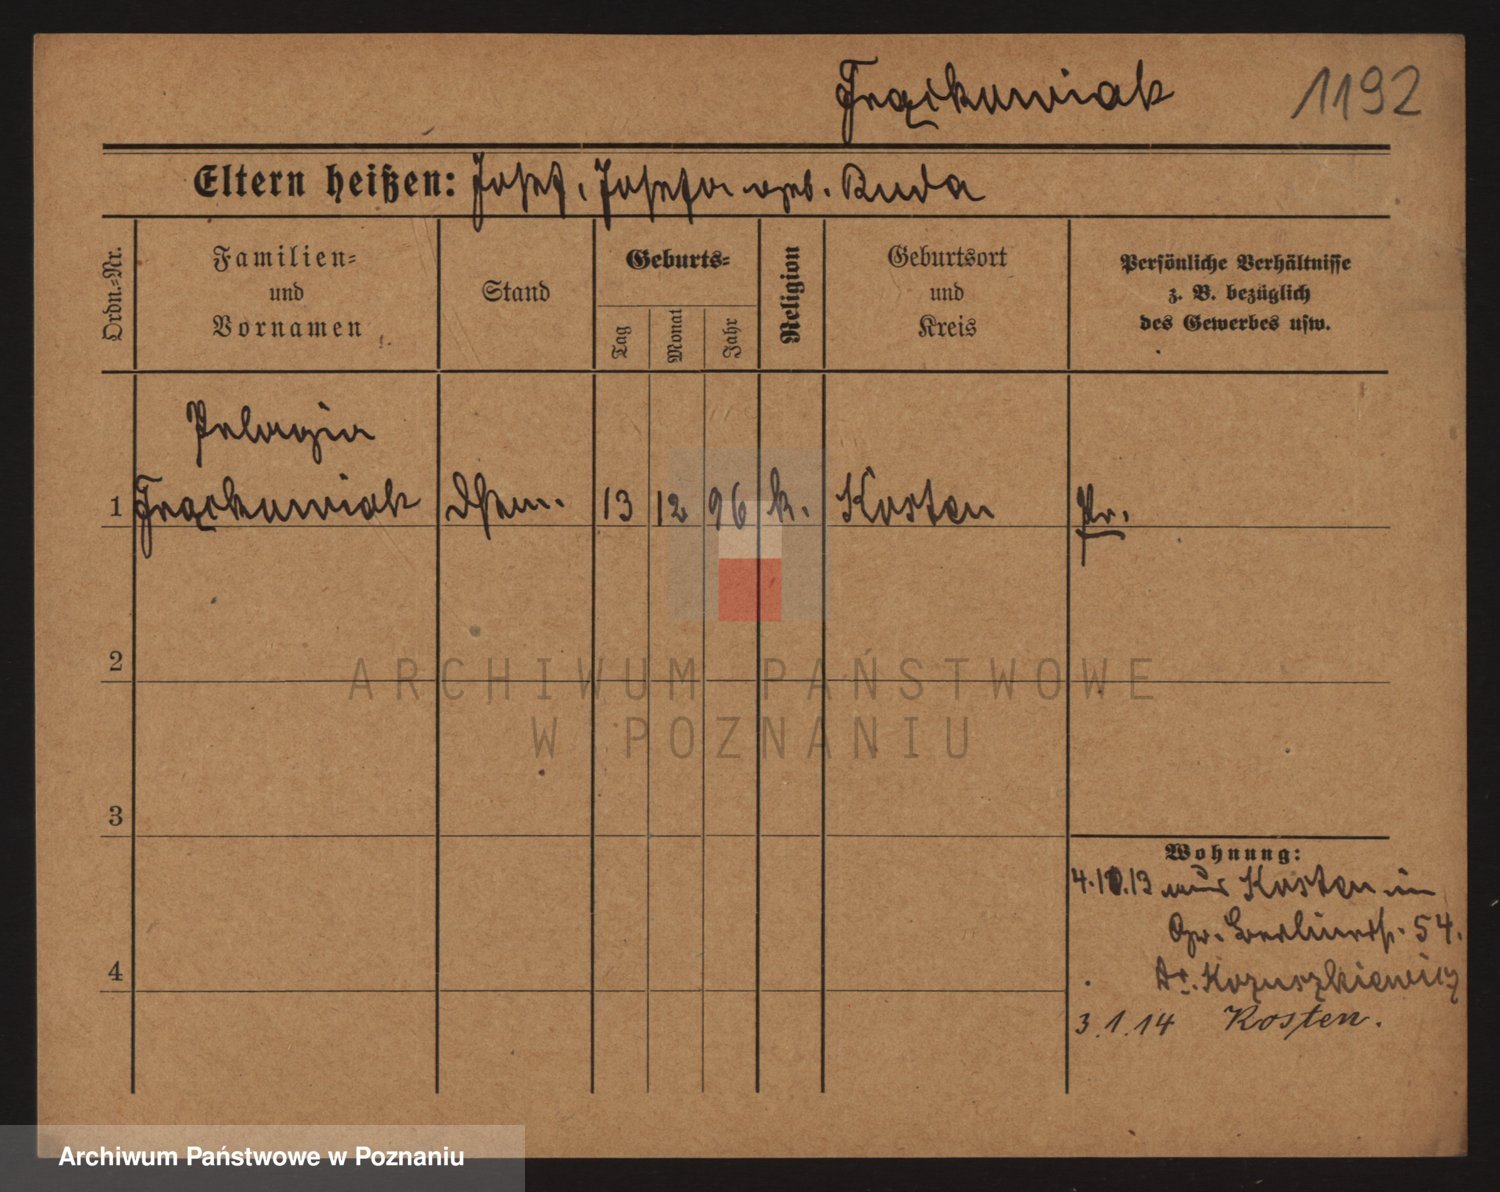 Frąckowiak 1192
Eltern heißen: Josef, Josefa geb. Ruda
Ordn.-Nr.
Familien-
und
Vornamen
Stand
Geburts-
Tag
Monat
Jahr
Religion
Geburtsort
und
Kreis
Persönliche Verhältnisse
z. B. bezüglich
des Gewerbes usw.
Pelagia
1 Frąckowiak 13 12 96 k. Kosten Pr.
2
3
4
Wohnung:
4.10.13 aus Kosten in
Gr. Berlinerstr. 54.
Dr.
3.1.14 Kosten.
ARCHIWUM PAŃSTWOWE
W POZNANIU
Archiwum Państwowe w Poznaniu